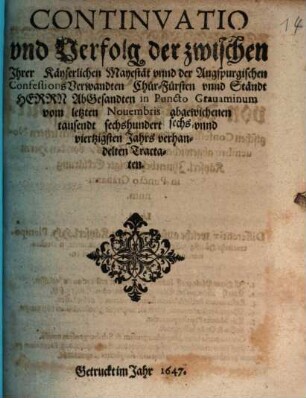 14
CONTINVATIO
vnd Verfolg der zwischen
Ihrer Käyserlichen Mayestät vnnd der Augspurgischen
Confessions Verwandten Chür-Fürsten vnnd Ständt
HERRN AbGesandten in Puncto Grauaminum
vom letzten Nouembris abgewichenen
tausendt sechshundert sechs vnnd
viertzigsten Jahrs verhan-
delten Tracta-
ten.
Getruckt im Jahr 1647.